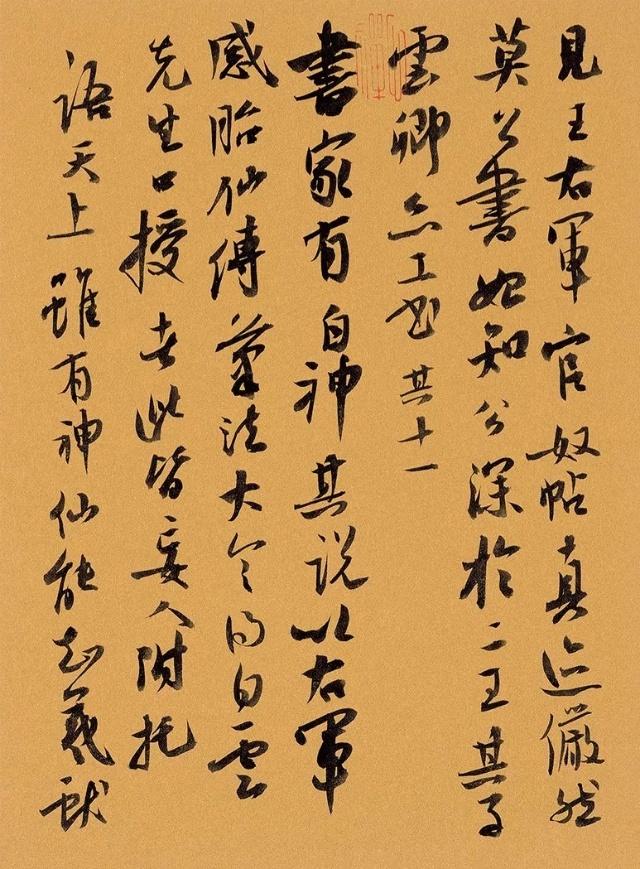 見王右軍官奴帖真迹儼然
莫公書始知公深於二王其子
雲卿亦工書其十一
書家有自神其說以右軍
感胎仙傳筆法大令得白雲
先生口授者此皆妄人附托
語天上雖有神仙能知羲獻